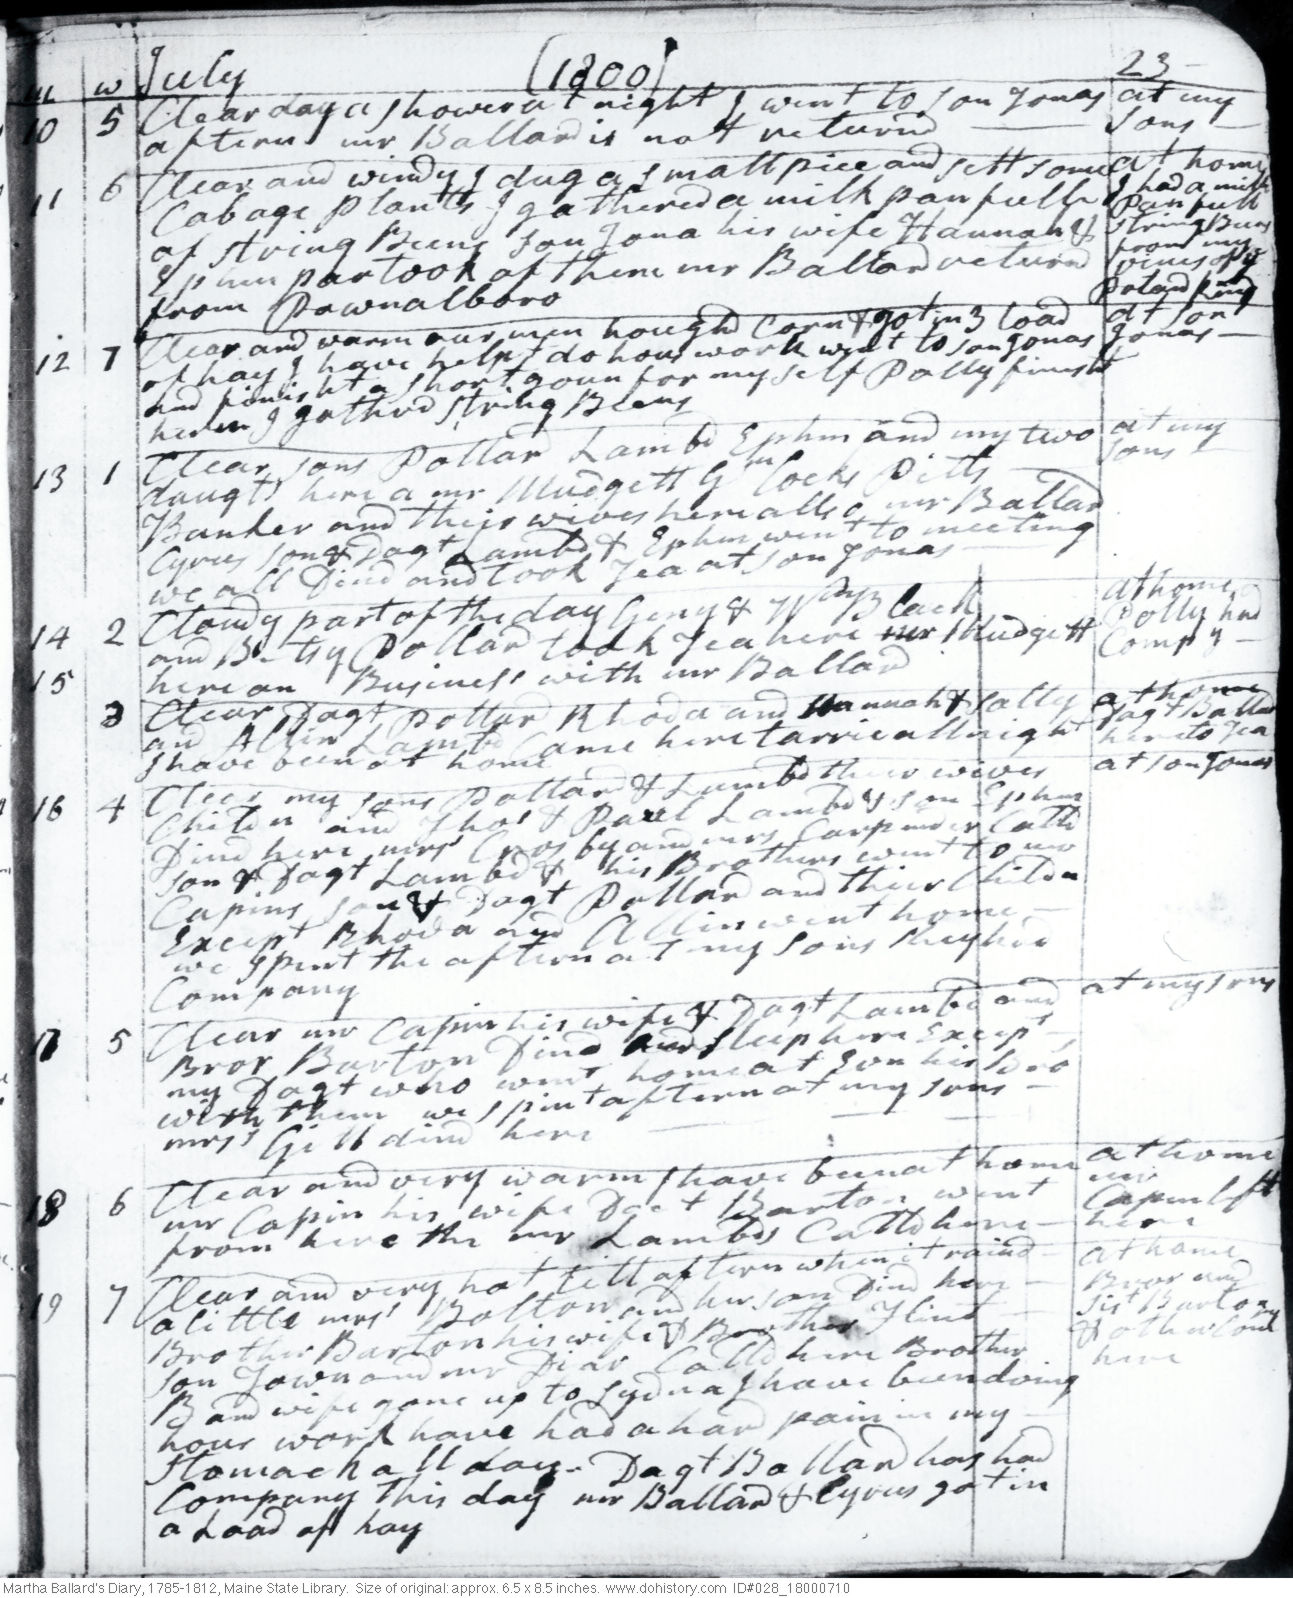 m w July (1800) 23
10 5 Clear day a shower at night I went to son Jonas at my
aftern mr Ballard is not returnd sons
11 6 Clear and windy I dug a small piece and sett some at home
Cabage Plants I gatherd a milk pan full I had a milk
of string Beens son Jona his wife Hannah & Pan full
Ephm partook of them mr Ballard returnd string Beens
from Pownalboro from my
vines
12 7 Clear and warm our men houghd Corn & got in 3 load at son
of hay I have helpt do hous work went to son Jonas Jonas
and finisht a short goun for my self Polly finisht
I gathrd string Beens
13 1 Clear sons Pollard Lambd Ephm and my two at my
daugts here a mr Mudgett Gm Cocks Pitts sons
Bunker and their wives here allso mr Ballard
Cyrus son & Dagt Lambd & Ephm went to meeting
we all Dind and took Tea at son Jonas
14 2 Cloudy part of the day Geny & Black at home
and Betsy Pollard took Tea here mr Mudgett Polly had
15 here on Business with mr Ballard Compy
3 Clear Dagt Pollard Rhoda and Hannah & Sally at home
and Allin Lambd Came here tarrie all night Dagt Ballard
I have been at home here to Tea
16 4 Clear my sons Pollard & Lambd their wives at son Jonas
Childn and Thos & Paul Lambd & son Ephm
Dind here mrs Crosby and mrs Carpender Calld
son & Dagt Lambd & his Brothers went to mr
Capins son & Dagt Pollard and thier Childn
Except Rhoda and Allin went home
we spent the aftern at my sons they had
Company
17 5 Clear mr Capin his wife & Dagt Lambd and at my sons
Bror Barton Dind and sleep here Except
my Dagt who went home at Evn his Bro
with them we spint aftern at my sons
mrss Gill dind here
18 6 Clear and very warm I have been at home at home
mr Capin his wife Dagt Barton went mr
from here the mr Lambds Calld here Capin left
here
19 7 Clear and very hot till aftern when it raind at home
a little mrss Bolton and her son Dind here Bror and
Brother Barton his wife & Brother Flint sist Barton
son Town and mr Diar Calld here Brother & other Comp
B and wife gone up to Sydna I have been doing here
hous work have had a hard pain in my
stomach all day. Dagt Ballard has had
Company this day mr Ballard & Cyrus got in
a Load of hay
Martha Ballard's Diary, 1785-1812, Maine State Library. Size of original: approx. 6.5 x 8.5 inches. www.dohistory.com ID#028_18000710